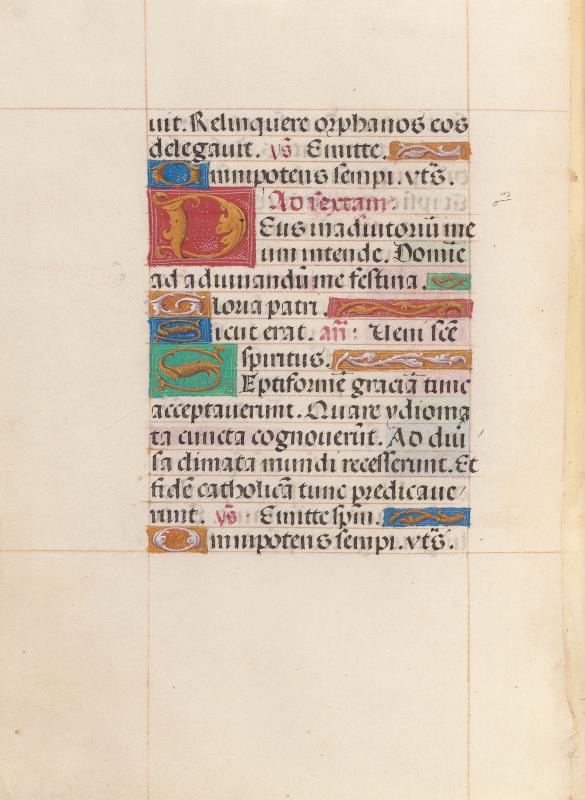 uit. Relinquere orphanos eos
delegavit. v̄s Emitte.
Omnipotens sempi. vt̄s.
Ad sextam.
Deus in adiutoriū me
um intende. Domine
ad adiuuandū me festina.
Gloria patri.
Sicut erat. añ: Ueni scē
spiritus.
Septiformē graciā tunc
acceptauerunt. Quare ydioma
ta cuncta cognouerūt. Ad diu
sa climata mundi recesserunt. Et
fidē catholicā tunc predicaue/
runt. v̄s Emitte spm̄.
Omnipotens sempi. vt̄s.